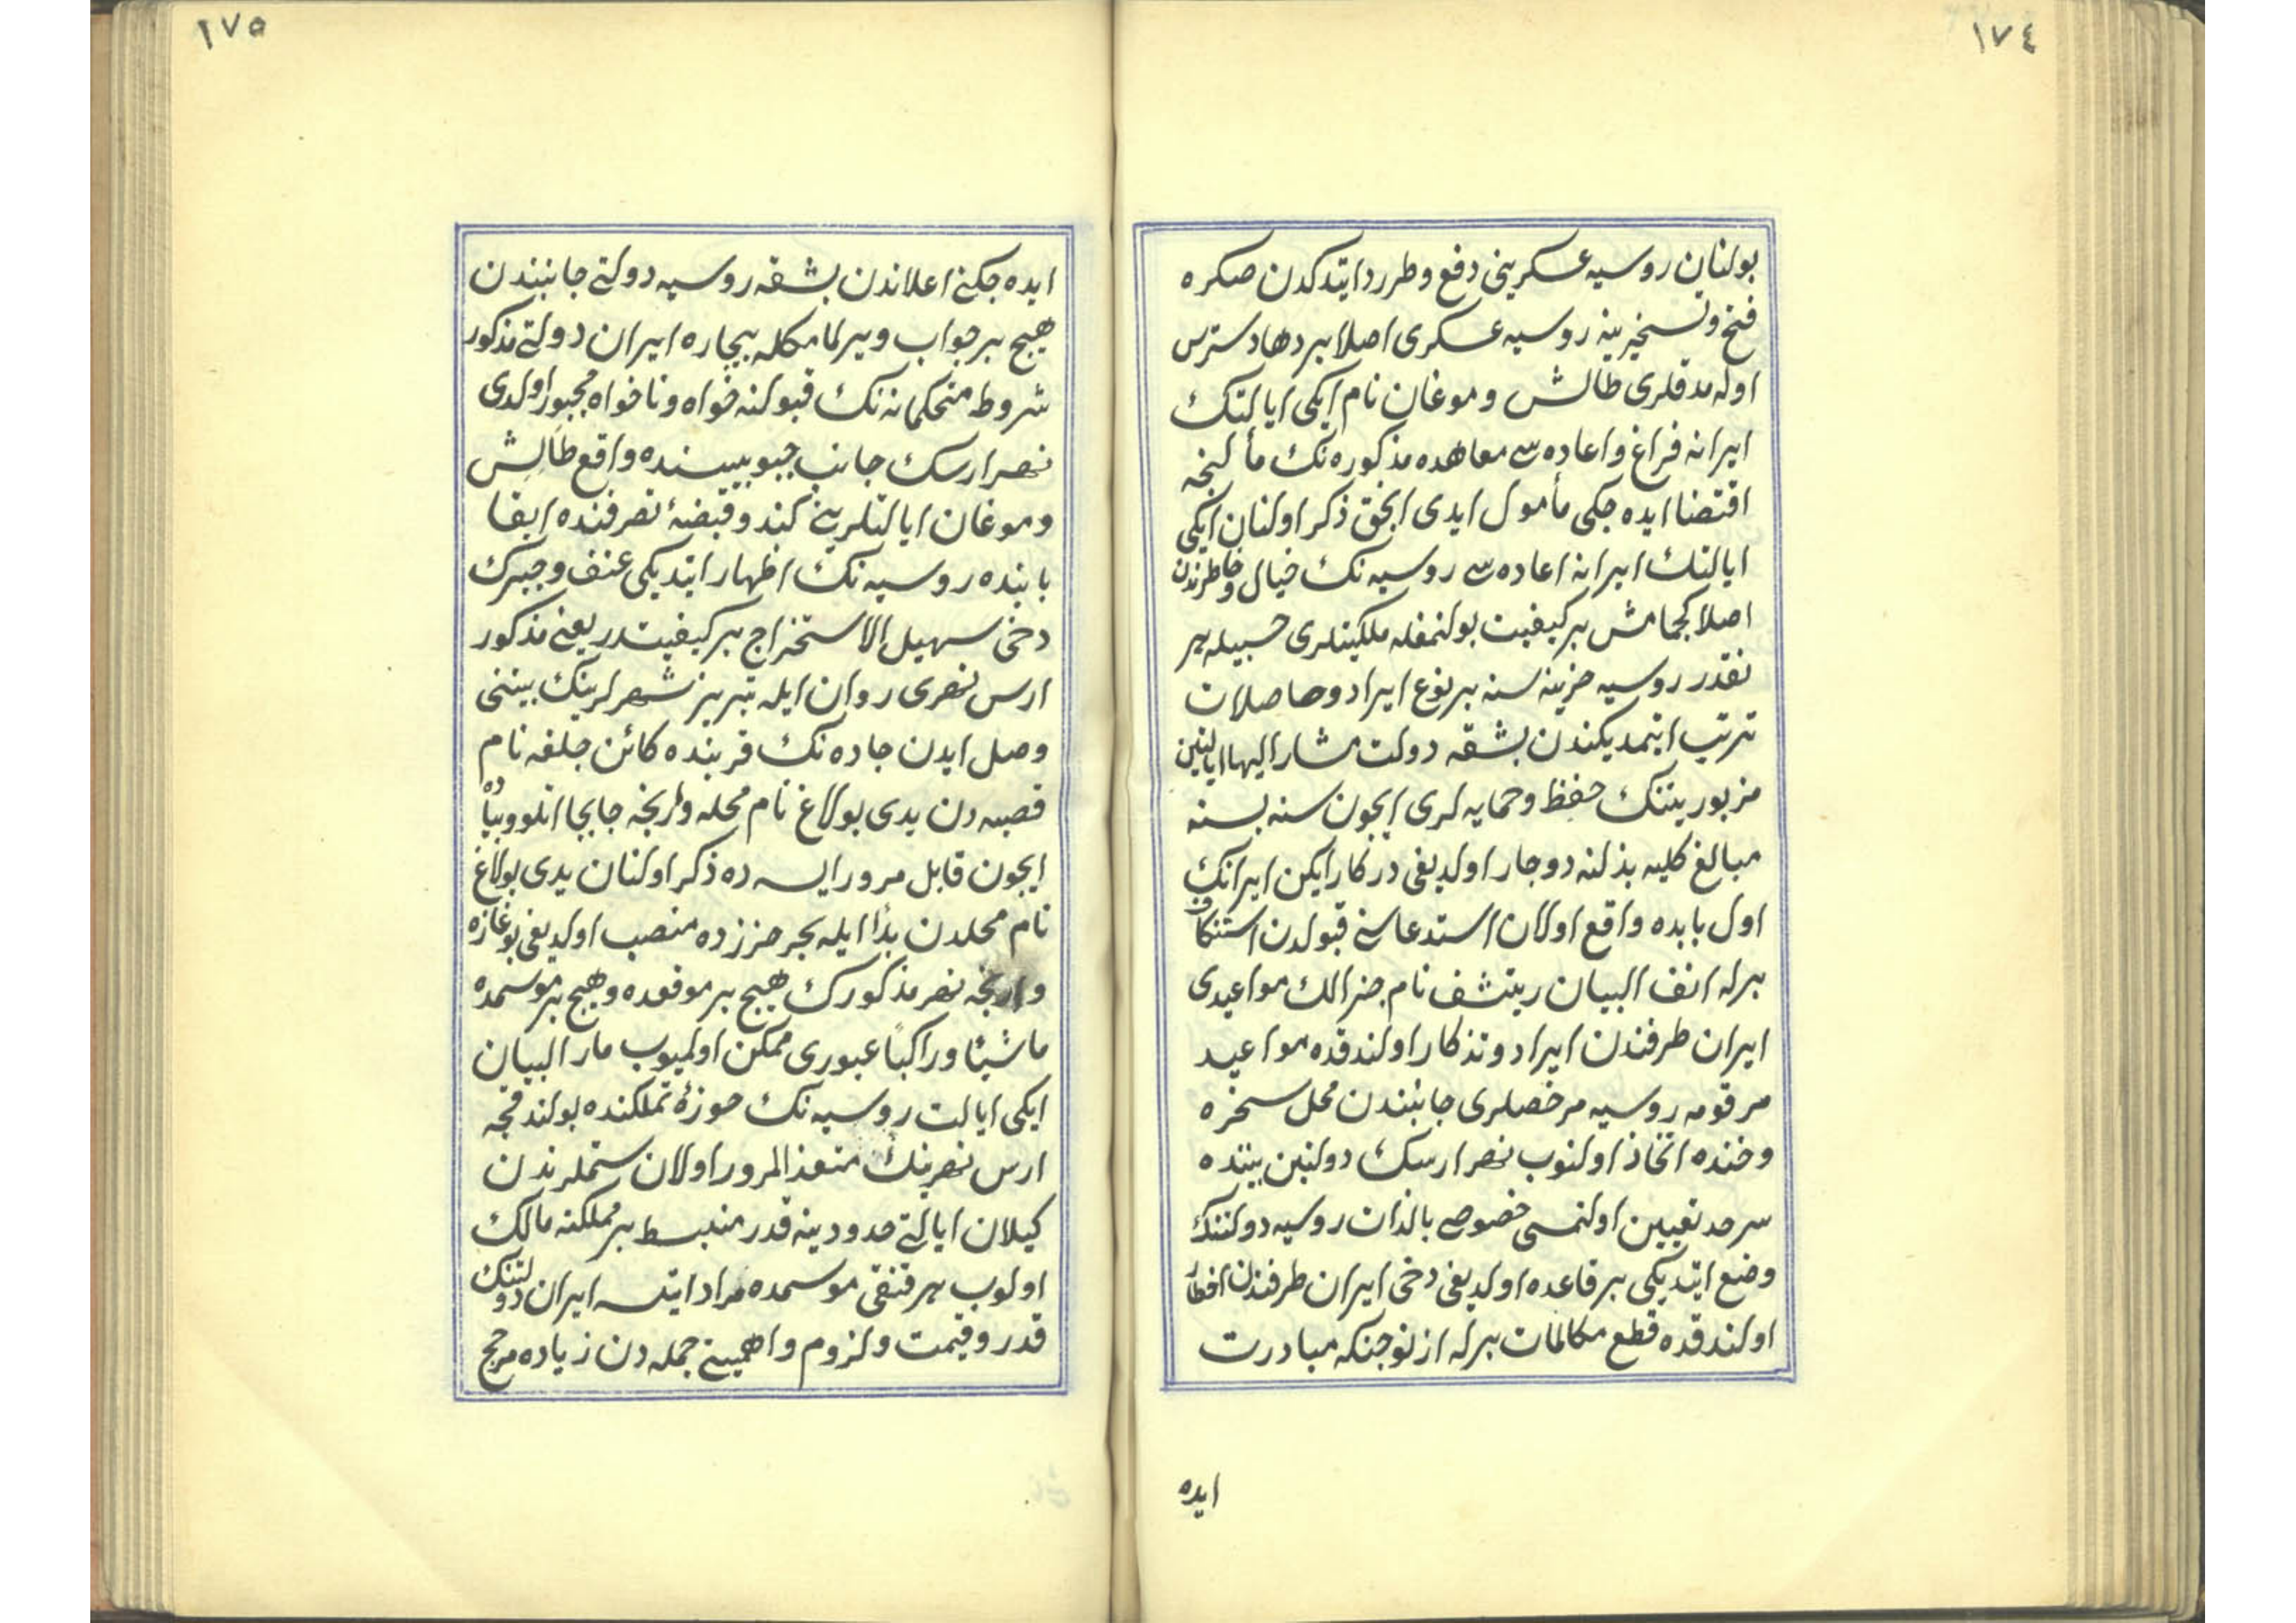 ١٧٤
بولنان روسيه عسكرينى دفع وطرد ايتدكدن صكره
فتح وتسخيرينه روسيه عسكرى اصلا بردها دسترس
اوله مدقلرى طالش وموغان نام ايكى ايالتك
ايرانه فراغ واعاده سى معاهده مذكوره نك مألنجه
اقتضا ايده جكى مأمول ايدى انجق ذكر اولنان ايكى
ايالتك ايرانه اعاده سى روسيه نك خيال وخاطرندن
اصلا كچمامش بر كيفيت بولنمغله ملكيتلرى حسبيله هر
نقدر روسيه خزينه سنه بر نوع ايراد وحاصلات
ترتب ايتمديكندن بشقه دولت مشار اليها ايالتين
مزبورينك حفظ وحمايه لرى ايچون سنه بسنه
مبالغ كليه بذلنه دوچار اولديغى دركار ايكن ايرانك
اول بابده واقع اولان استدعاسنى قبولدن استنكاف
برله انف البيان ريتشف نام جنرالك مواعيدى
ايران طرفندن ايراد وتذكار اولندقده مواعيد
مرقومه روسيه مرخصلرى جانبندن محل سخره
وخنده اتخاذ اولنوب نهر ارسك دولتين بيننده
سرحد تعيين اولنمسى خصوصى بالذات روسيه دولتنك
وضع ايتديكى بر قاعده اولديغى دخى ايران طرفندن اخطار
اولندقده قطع مكالمات برله از نو جنكه مبادرت
ايده
١٧٥
ايده جكنى اعلاندن بشقه روسيه دولتى جانبندن
هيچ بر جواب ويرلمامكله بيچاره ايران دولتى مذكور
شروط متحكمانه نك قبولنه خواه وناخواه مجبور اولدى
نهر ارسك جانب جنوبيسنده واقع طالش
وموغان ايالتلرينى كندو قبضۀ تصرفنده ابقا
بابنده روسيه نك اظهار ايتديكى عنف وجبرك
دخى سهيل الاستخراج بر كيفيتدر يعنى مذكور
ارس نهرى روان ايله تبريز شهرلرينك بيننى
وصل ايدن جاده نك قربنده كائن جلفه نام
قصبه دن يدى بولاغ نام محله وارنجه جابجا اتلو وپياده
ايچون قابل مرور ايسه ده ذكر اولنان يدى بولاغ
نام محلدن بدأ ايله بحر خزرده منصب اولديغى بوغازه
وارنجه نهر مذكورك هيچ بر موقعده وهيچ بر موسمده
ماشيًا وراكبًا عبورى ممكن اولميوب مار البيان
ايكى ايالت روسيه نك حوزۀ تملكنده بولندقجه
ارس نهرينك متعذر المرور اولان سمتلرندن
كيلان ايالتى حدودينه قدر منبسط بر مملكته مالك
اولوب هر قنغى موسمده مراد ايتسه ايران دولتنك
قدر وقيمت ولزوم واهميتى جمله دن زياده مرجح